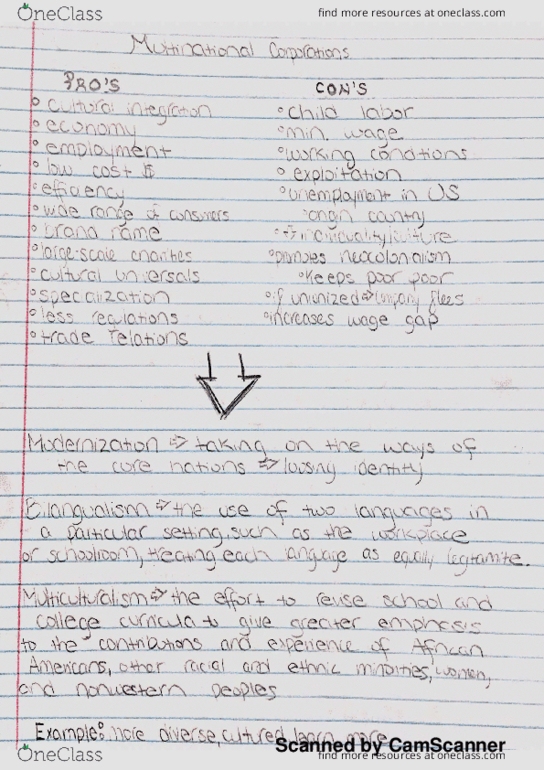 OneClass
find more resources at oneclass.com
Multinational Corporations
PRO'S
CON'S
° cultural integration
° economy
° employment
° low cost $
° efficiency
° wide range of consumers
° brand name
° large-scale charities
° cultural universals
° specialization
° less regulations
° trade relations
° child labor
° min. wage
° working conditions
° exploitation
° unemployment in US
origin country
° promotes neocolonalism
° keeps poor poor
° if unionized ⇒ company flees
° increases wage gap
Modernization ⇒ taking on the ways of
the core nations ⇒ loosing identity
Bilangualism ⇒ the use of two languages in
a particular setting, such as the workplace
or schoolroom, treating each language as equally legtamite.
Multiculturalism ⇒ the effort to revise school and
college curricula to give greater emphasis
to the contributions and experience of African
Americans, other racial and ethnic minorities, women,
and nonwestern peoples
Example: more diverse, cultured, learn more
Scanned by CamScanner
OneClass
find more resources at oneclass.com